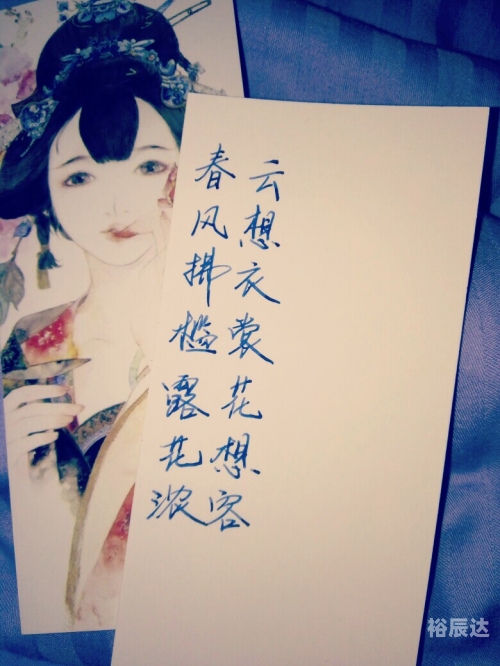 云想衣裳花想容
春风拂槛露花浓
裕辰达